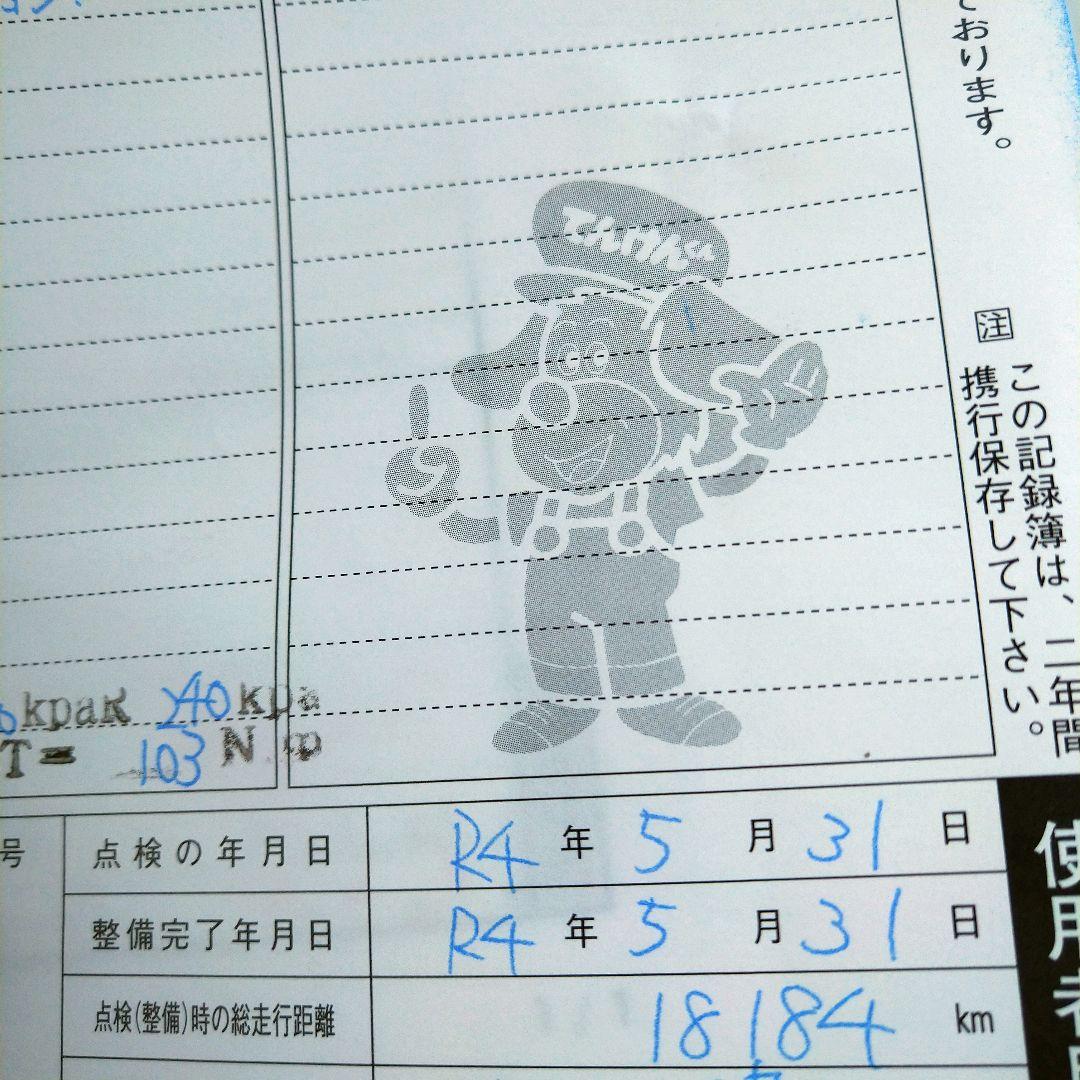 ております。
注 この記録簿は、二年間
携行保存して下さい。
てんけんくん
kpaR 240kpa
T= 103 N
号
点検の年月日 R4年 5月 31日
整備完了年月日 R4年 5月 31日
点検(整備)時の総走行距離 18184 km
使用者